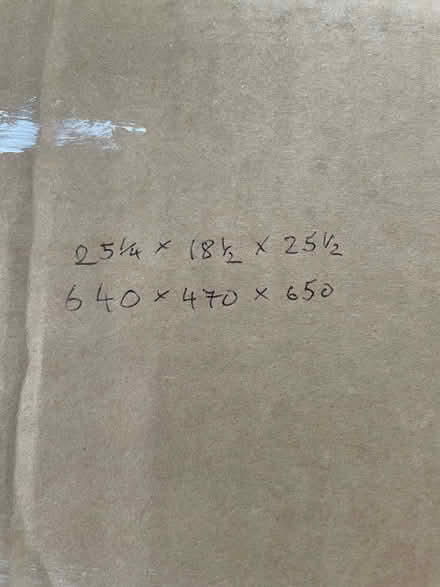 25 1/4 × 18 1/2 × 25 1/2
640 × 470 × 650